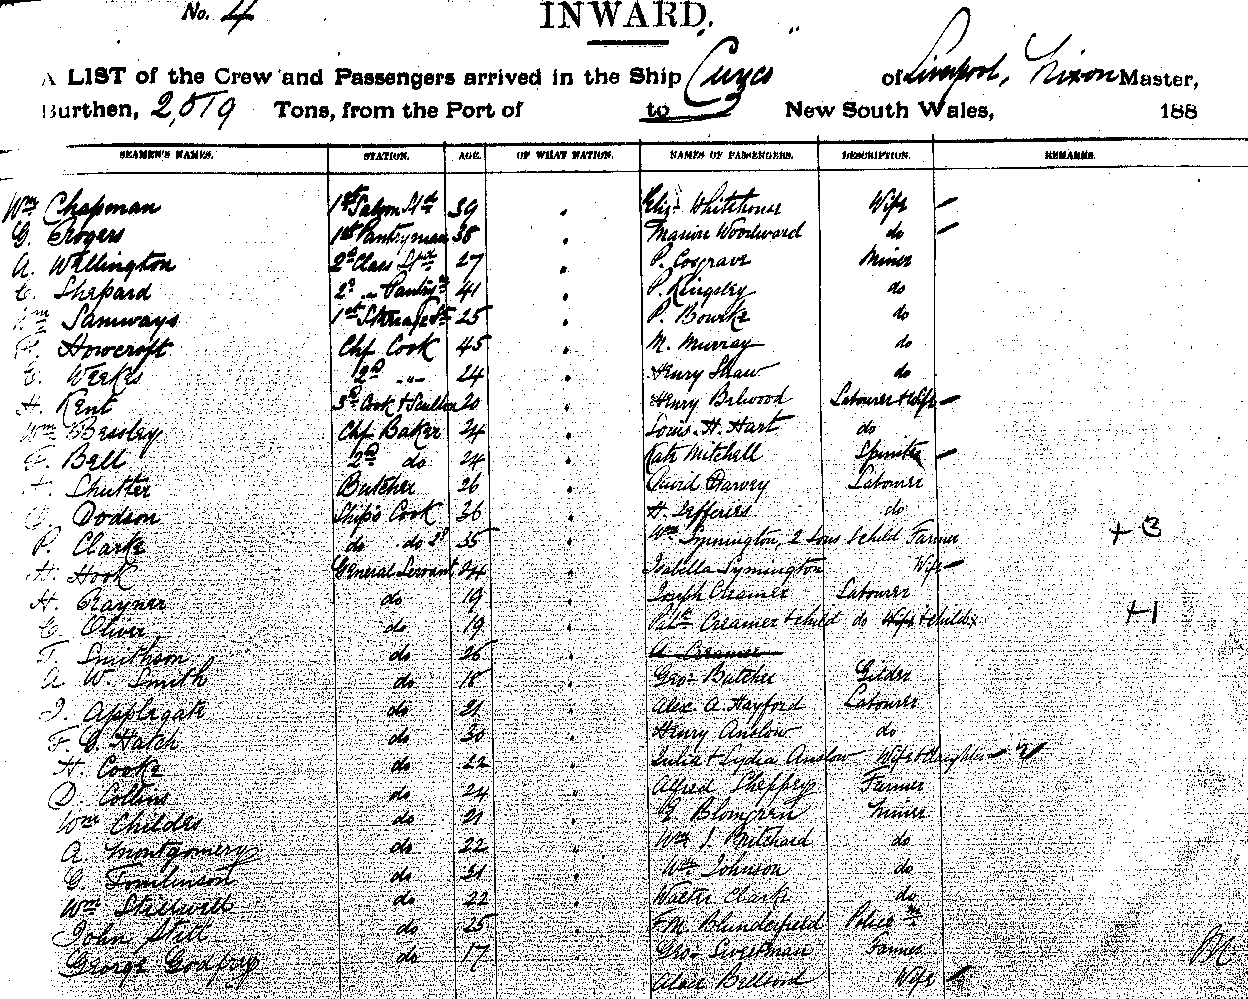 No. 4
INWARD.
A LIST of the Crew and Passengers arrived in the Ship Cuzco of Liverpool, Nixon Master,
Burthen, 2,519 Tons, from the Port of to New South Wales, 188
SEAMEN'S NAMES. STATION. AGE. OF WHAT NATION. NAMES OF PASSENGERS. DESCRIPTION. REMARKS.
Wm Chapman 1st Saloon Std 39 " Eliz. Whitehouse Wife
G. Rogers 1st Pantryman 38 " Marion Woodward do
A. Wellington 2d Class Std 27 " P. Cosgrave Miner
Shepard 2d " 41 " P. Kingsley do
Wm Samways 1st Steerage St 25 " P. Bourke do
Howcroft Chf Cook 45 " M. Murray do
E. Weekes 2nd " 24 " Henry Shaw do
H. Kent 3rd Cook & Scullion 20 " Henry Belwood Labourer & Wife
Wm Beasley Chf Baker 24 " Louis H. Hart do
F. Bell 2nd do 24 " Kate Mitchell Spinster
Shutter Butcher 26 " David Darvey Labourer
Dodson Ship's Cook 36 " H. Jefferies do
P. Clarke do do 35 " Wm Symington, 2 sons & child Farmer + 3
H. Hook General Servant 24 " Isabella Symington Wife
H. Rayner do 19 " Joseph Creamer Labourer
C. Oliver do 19 " Creamer & child do Wife & child +1
T. Smithson do 26 "
A. W. Smith do 18 " Geo. Butcher Gilder
J. Applegate do 21 " Alex. A. Hayford Labourer
F. C. Hatch do 20 " Henry Anslow do
H. Cooke do 22 " Julia & Lydia Anslow Wife & daughter
D. Collins do 24 " Alfred Sheppey Farmer
Wm Childes do 21 " Blomgren Miner
A. Montgomery do 22 " Wm J. Pritchard do
G. Tomlinson do 21 " Wm Johnson do
Wm Stillwell do 22 " Walter Clark do
John Stett do 25 " F. M. Blunderfield Policeman
George Godfrey do 17 " Geo. Sweetman Farmer
Alice Bellwood Wife